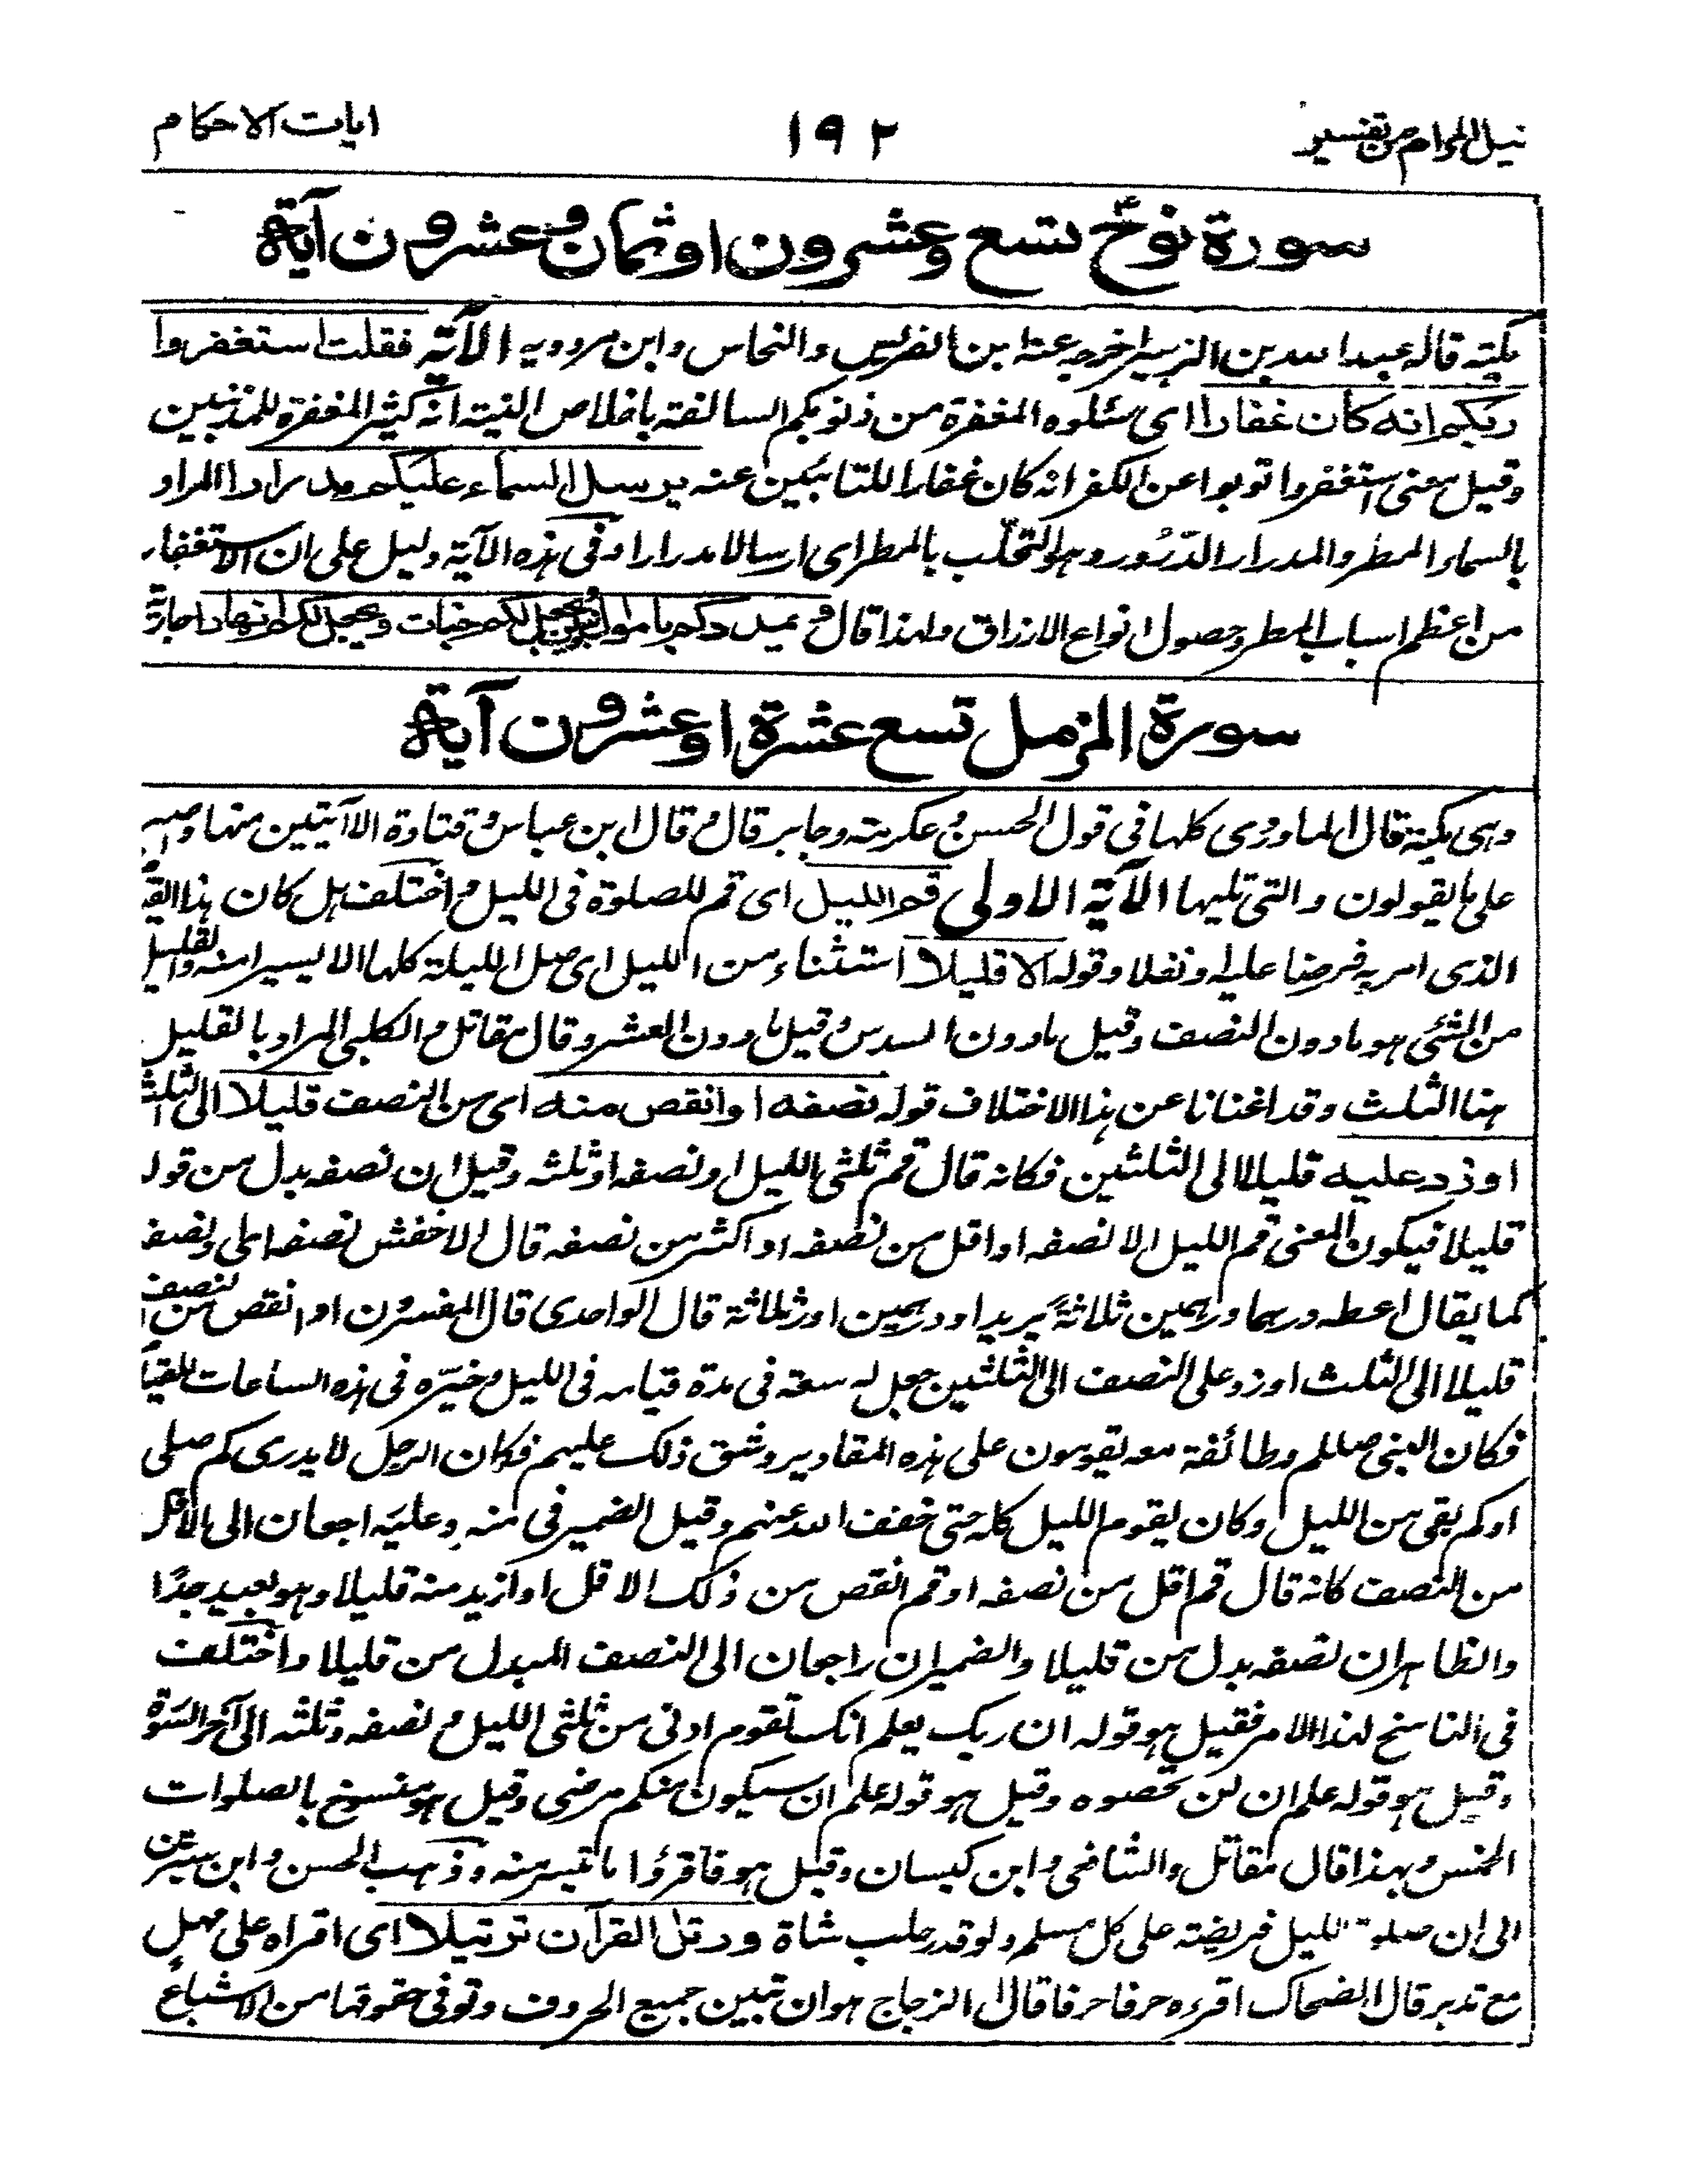 نيل المرام من تفسير ١٩٢ ايات الاحكام
سورة نوح تسع وعشرون او ثمان وعشرون آية
مكية قاله عبد الله بن الزبير اخرجه عنه ابن الضريس والنحاس وابن مردويه الآية فقلت استغفروا
ربكم انه كان غفارا اى سئلوه المغفرة من ذنوبكم السالفة باخلاص النية انه كثير المغفرة للمذنبين
وقيل معنى استغفروا توبوا عن الكفر انه كان غفارا للتائبين عنه يرسل السماء عليكم مدرارا المراد
بالسماء المطر والمدرار الدرور وهو التحلب بالمطر اى ارسالا مدرارا وفى هذه الآية دليل على ان الاستغفار
من اعظم اسباب المطر وحصول انواع الارزاق ولهذا قال ويمددكم باموال وبنين ويجعل لكم جنات ويجعل لكم انهارا جارية
سورة المزمل تسع عشرة او عشرون آية
وهى مكية قال الماوردى كلها فى قول الحسن وعكرمة وجابر قال وقال ابن عباس وقتادة الا آيتين منها واصبر
على ما يقولون والتى تليها الآية الاولى قم الليل اى قم للصلوة فى الليل واختلف هل كان هذا القيام
الذى امر به فرضا عليه او نفلا وقوله الا قليلا استثناء من الليل اى صل الليلة كلها الا يسيرا منه والقليل
من الشئ هو ما دون النصف وقيل ما دون السدس وقيل ما دون العشر وقال مقاتل والكلبى المراد بالقليل
هنا الثلث وقد اغنانا عن هذا الاختلاف قوله نصفه او انقص منه اى من النصف قليلا الى الثلث
او زد عليه قليلا الى الثلثين فكانه قال قم ثلثى الليل او نصفه او ثلثه وقيل ان نصفه بدل من قوله
قليلا فيكون المعنى قم الليل الا نصفه او اقل من نصفه او اكثر من نصفه قال الاخفش نصفه اى او نصفه
كما يقال اعطه درهما درهمين ثلاثة يريد او درهمين او ثلاثة قال الواحدى قال المفسرون او انقص من النصف
قليلا الى الثلث او زد على النصف الى الثلثين جعل له سعة فى مدة قيامه فى الليل وخيره فى هذه الساعات للقيام
فكان النبى صللم وطائفة معه يقومون على هذه المقادير وشق ذلك عليهم فكان الرجل لا يدرى كم صلى
او كم بقى من الليل وكان يقوم الليل كله حتى خفف الله عنهم وقيل الضمير فى منه وعليه راجعان الى الاقل
من النصف كانه قال قم اقل من نصفه او قم انقص من ذلك الاقل او ازيد منه قليلا وهو بعيد جدا
والظاهر ان نصفه بدل من قليلا والضميران راجعان الى النصف المبدل من قليلا واختلف
فى الناسخ لهذا الامر فقيل هو قوله ان ربك يعلم انك تقوم ادنى من ثلثى الليل ونصفه وثلثه الى آخر السورة
وقيل هو قوله علم ان لن تحصوه وقيل هو قوله علم ان سيكون منكم مرضى وقيل هو منسوخ بالصلوات
الخمس وبهذا قال مقاتل والشافعى وابن كيسان وقيل هو فاقرؤا ما تيسر منه وذهب الحسن وابن سيرين
الى ان صلوة الليل فريضة على كل مسلم ولو قدر حلب شاة ورتل القرآن ترتيلا اى اقراه على مهل
مع تدبر قال الضحاك اقرءه حرفا حرفا قال الزجاج هو ان تبين جميع الحروف وتوفى حقوقها من الاشباع